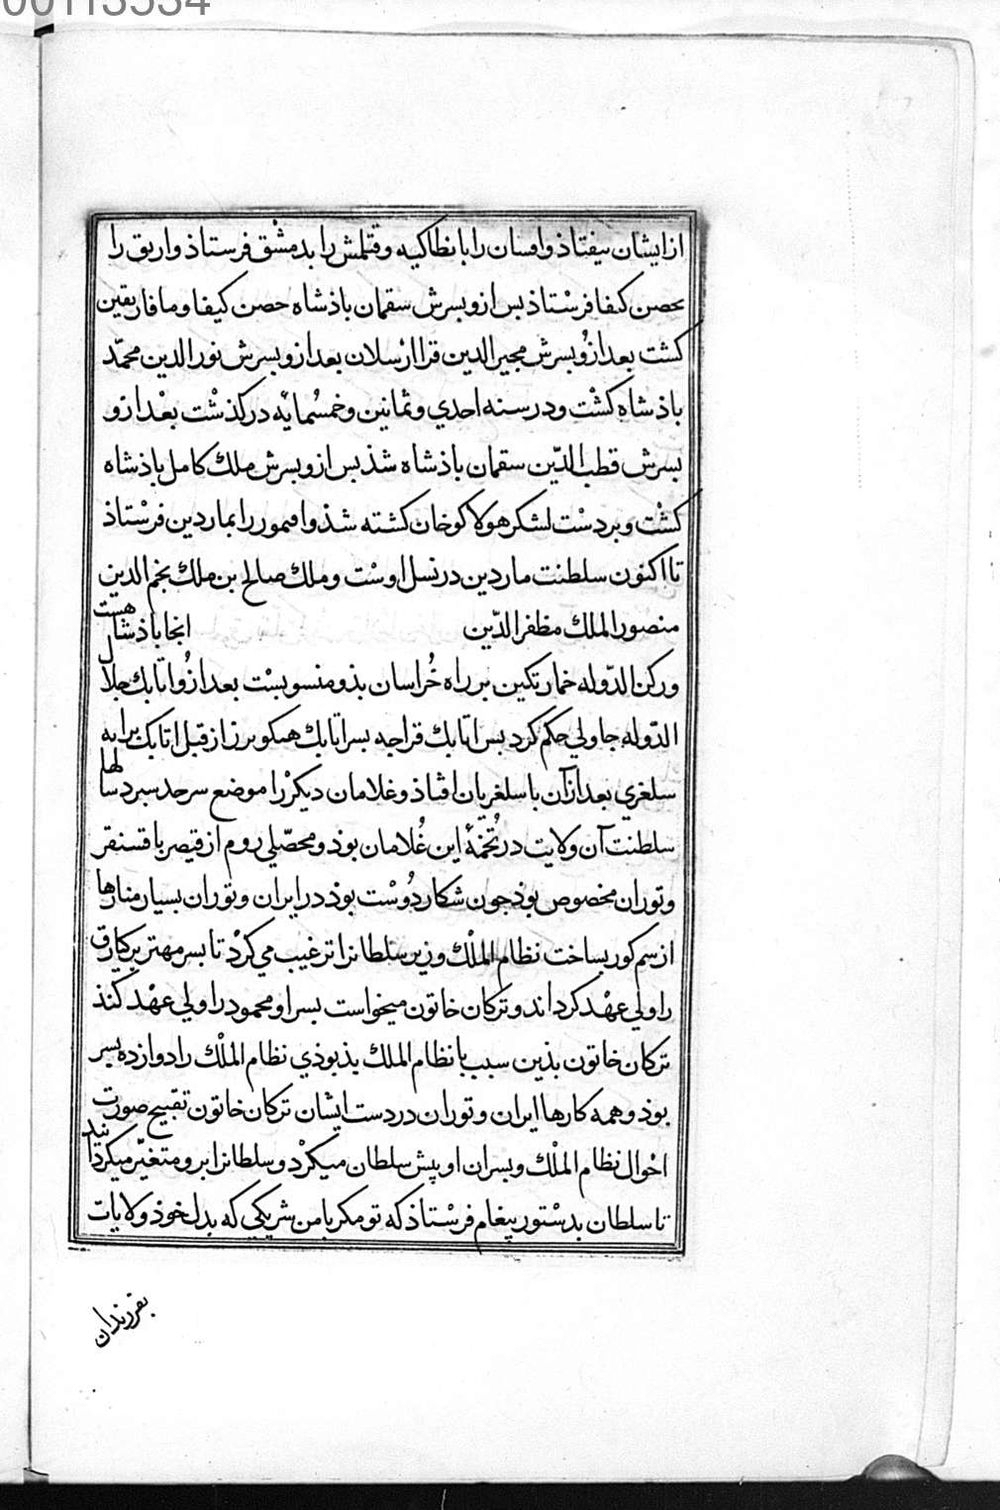 00113534
از ایشان بیفتاذ وامسان را بانطاکیه و قتلمش را بدمشق فرستاذ وارتق را
بحصن کیفا فرستاذ بس ازو بسرش سقمان باذشاه حصن کیفا و میافارقین
کشت بعد ازو بسرش مجیر الدین قرا ارسلان بعد ازو بسرش نور الدین محمّد
باذشاه کشت و در سنه احدی و ثمانین و خمسمایه در کذشت بعد ازو
بسرش قطب الدّین سقمان باذشاه شذ بس ازو بسرش ملک کامل باذشاه
کشت و بر دست لشکر هولاکو خان کشته شذ را بماردین فرستاذ
تا اکنون سلطنت ماردین در نسل اوست و ملک صالح بن ملک نجم الدین
منصور الملک مظفر الدّین انجا باذشاه هست
و رکن الدّوله خمارتکین بر راه خُراسان بذو منسوبست بعد ازُو اتابک جلال
الدّوله جاولی حکم کرد بس اتابک قراجه بس اتابک منکوبرز از قبل اتابک بزابه
سلغری بعد از آن با سلغریان افتاذ و غلامان دیکر را موضع سرحد سبرد سالها
سلطنت آن ولایت در تُخمهٔ این غُلامان بوذ و محصّلی روم از قیصر باقسنقر
و توران مخصوص بوذ جون شکار دُوست بوذ در ایران و توران بسیار منارها
از سم کور بساخت نظام الملک وزیر سلطانرا ترغیب می کرد تا بسر مهتر برکیارق
را ولی عهد کرداند و ترکان خاتون میخواست بسر او محمود را ولی عهد کنذ
ترکان خاتون بذین سبب با نظام الملک بذ بوذی نظام الملک را دوازده بسر
بوذ و همه کارها ایران و توران در دست ایشان ترکان خاتون تقبیح صورت
احوال نظام الملک و بسران او پیش سلطان میکرد و سلطانرا برو متغیّر میکردانید
تا سلطان بدستور پیغام فرستاذ که تو مکر با من شریکی که بدل خوذ ولایات
بفرزندان